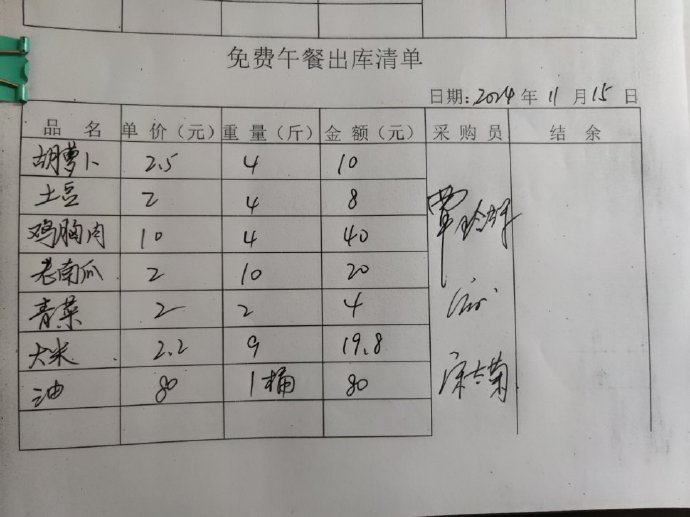 免费午餐出库清单
日期: 2024 年 11 月 15 日
品名 单价（元） 重量（斤） 金额（元） 采购员 结余
胡萝卜 2.5 4 10
土豆 2 4 8
鸡胸肉 10 4 40
老南瓜 2 10 20
青菜 2 2 4
大米 2.2 9 19.8
油 80 1桶 80